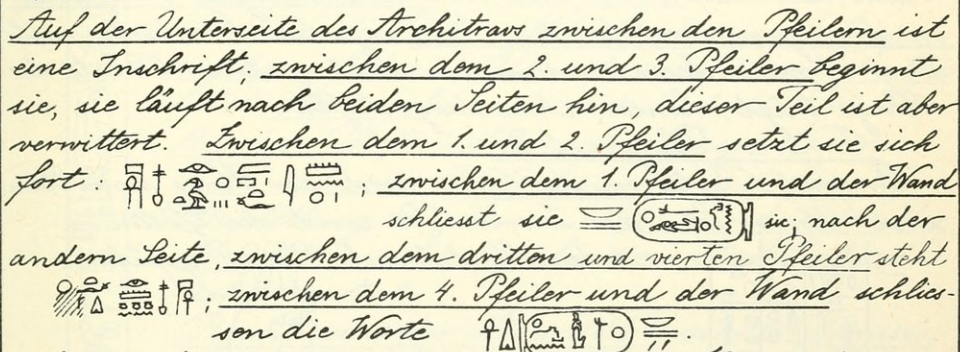 Auf der Unterseite des Architravs zwischen den Pfeilern ist
eine Inschrift; zwischen dem 2. und 3. Pfeiler beginnt
sie, sie läuft nach beiden Seiten hin, dieser Teil ist aber
verwittert. Zwischen dem 1. und 2. Pfeiler setzt sie sich
fort: ; zwischen dem 1. Pfeiler und der Wand
schliesst sie sic; nach der
andern Seite, zwischen dem dritten und vierten Pfeiler steht
; zwischen dem 4. Pfeiler und der Wand schlies-
sen die Worte .